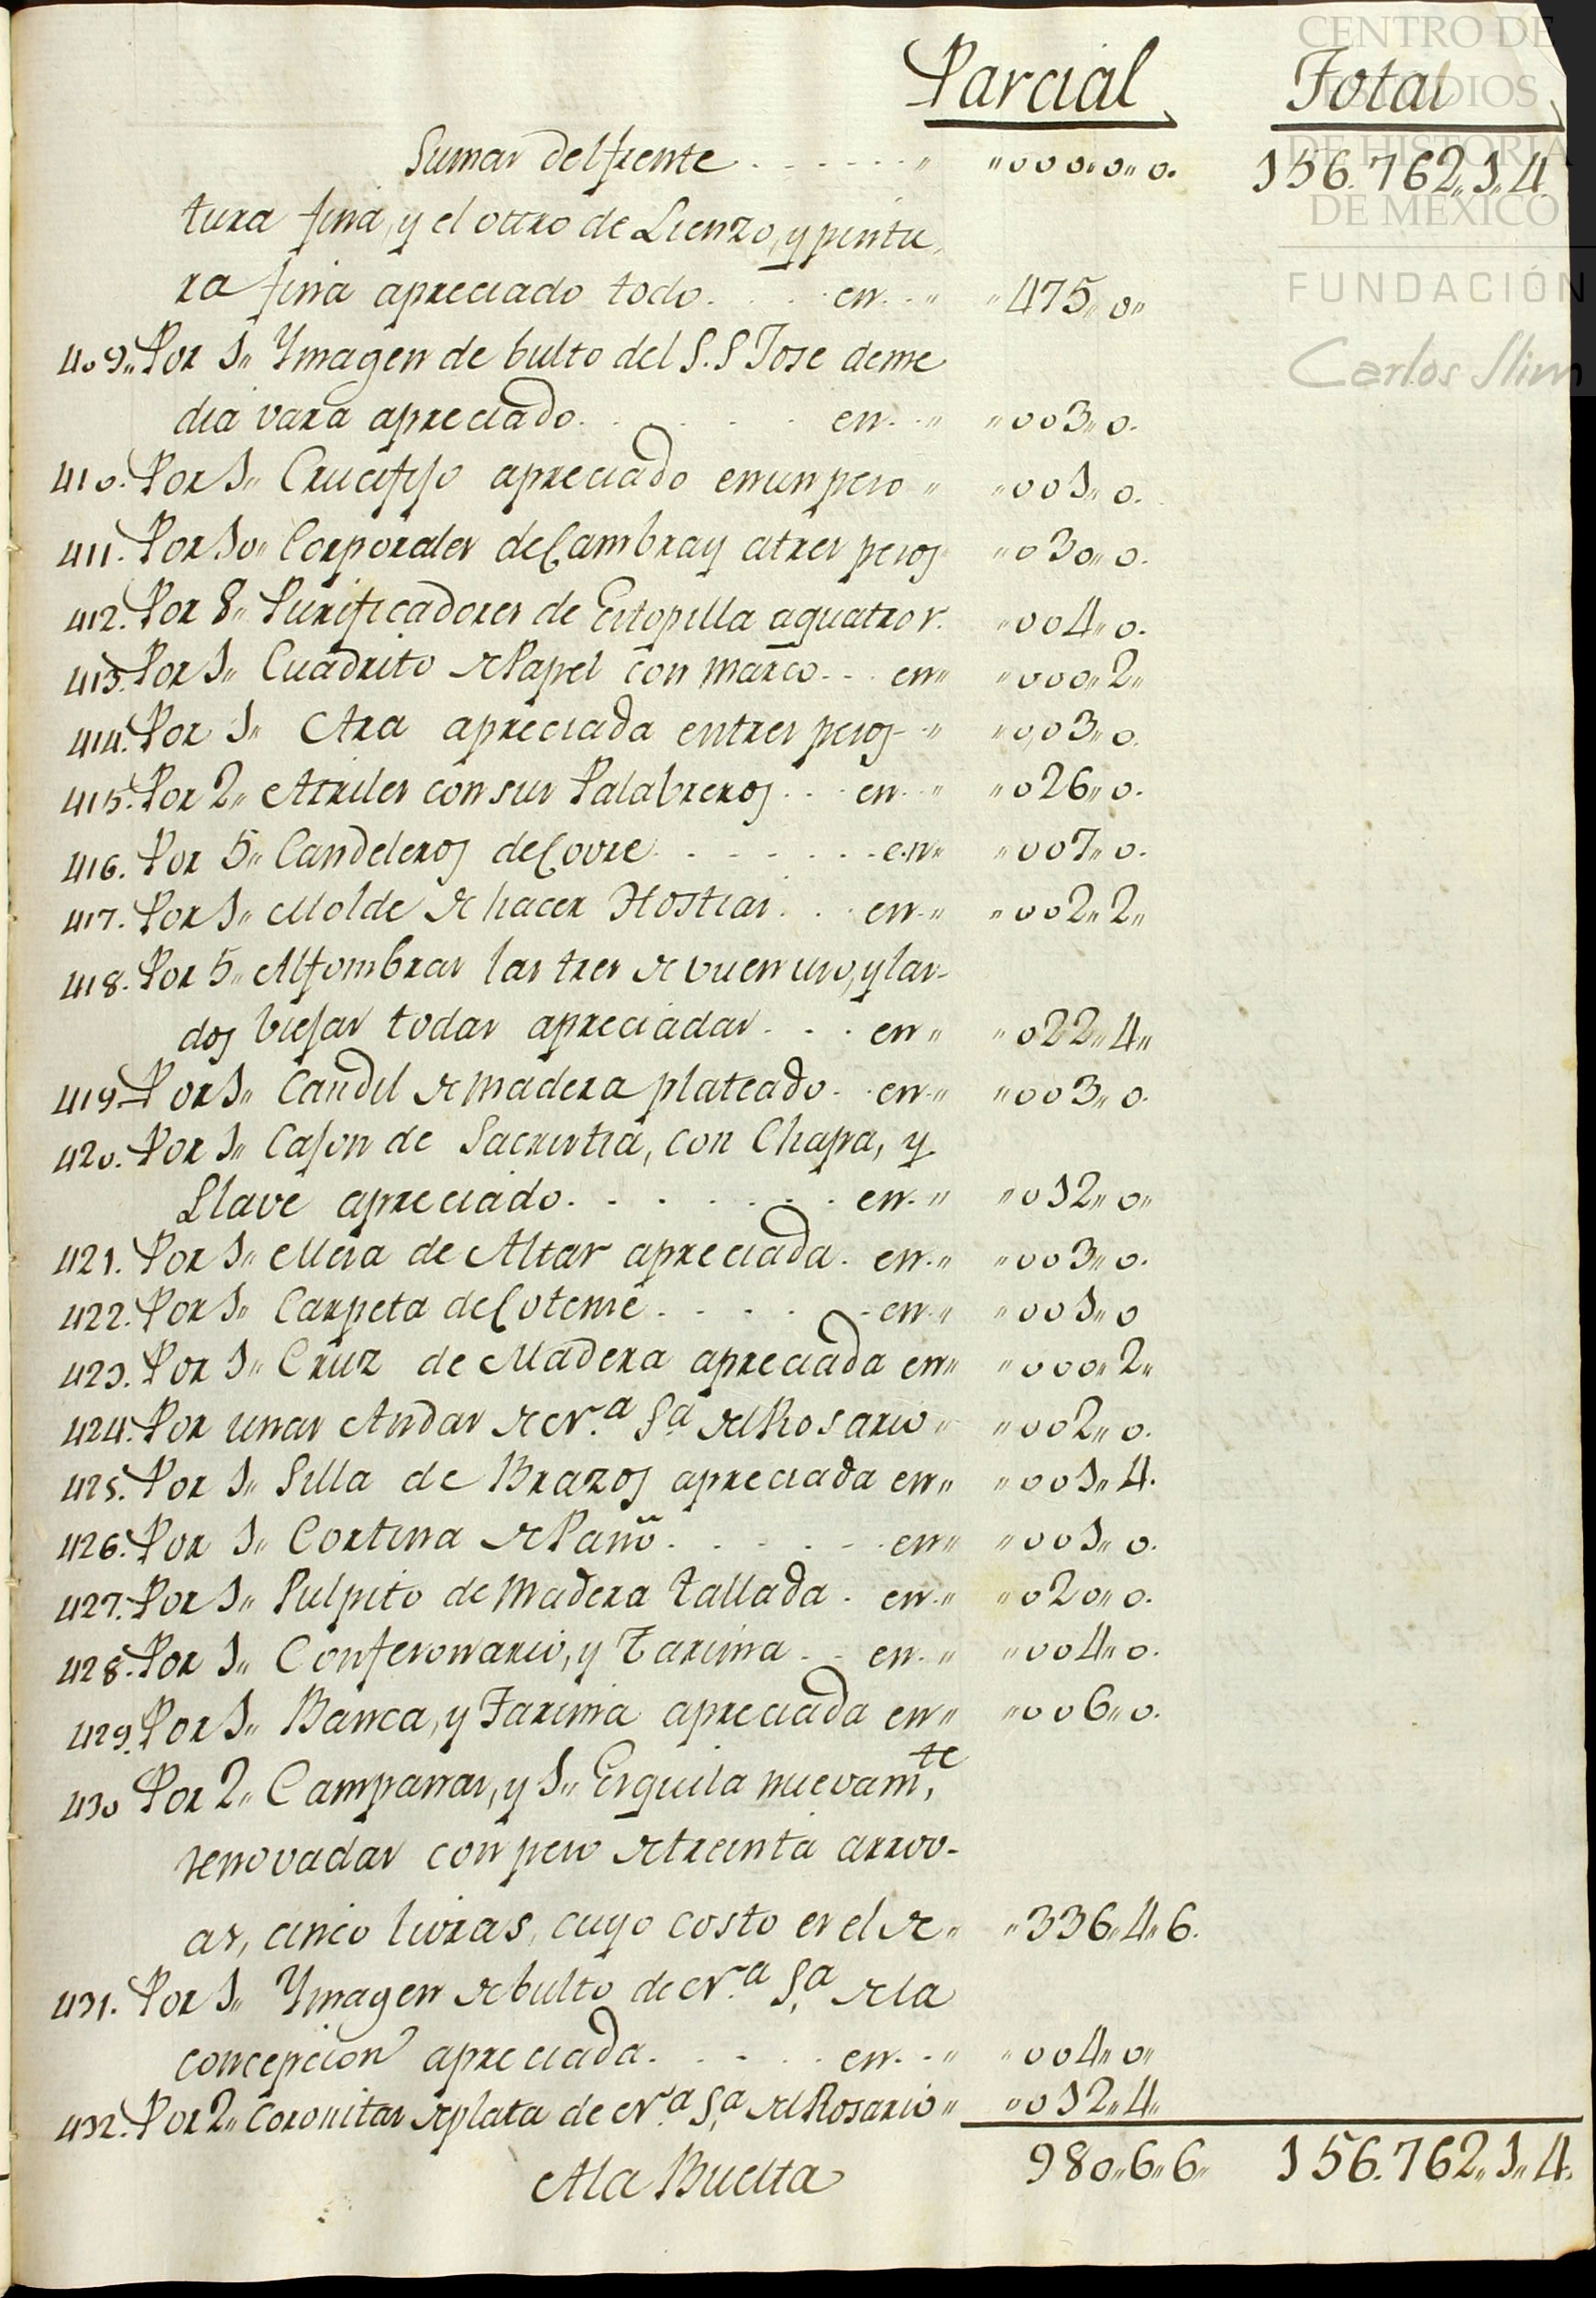 Parcial Total
Sumas del frente . . . . . . " "000"0"0. 156.762"1"4
tura fina, y el ottro de Lienzo, y pintu,
ra fina apreciado todo. . . . en . . " "475"0"
409" Por 1" Ymagen de bulto del S. S Jose de me
dia vara apreciado. . . . . . en . . " "003"0.
410. Por 1" Crucifijo apreciado en un peso " "001"0.
411. Por 10" Corporales de Cambray a tres pesos "030"0.
412. Por 8" Purificadores de Estopilla a quatro r. "004"0.
413. Por 1" Cuadrito de Papel con marco . . . en" "000"2"
414. Por 1" Ara apreciada en tres pesos - " "003"0.
415. Por 2" Atriles con sus Palabreros . . . en . . " "026"0.
416. Por 5" Candeleros de Covre . . . . . . . en" "007"0.
417. Por 1" Molde de hacer Hostias . . . en . " "002"2"
418. Por 5" Alfombras las tres de buen uso, y las-
dos biejas todas apreciadas . . . en" "022"4"
419. Por 1" Candil de madera plateado . . en . " "003"0.
420. Por 1" Cajon de Sacristia, con Chapa, y
Llave apreciado. . . . . . . en . " "012"0"
421. Por 1" Mesa de Altar apreciada . en . " "003"0.
422. Por 1" Carpeta de Cotense . . . . . en . " "001"0
423. Por 1" Cruz de Madera apreciada en" "000"2"
424. Por unas Andas de N.ª S.ª del Rosario " "002"0.
425. Por 1" Silla de Brazos apreciada en" "001"4.
426. Por 1" Cortina de Paño . . . . . . en" "001"0.
427. Por 1" Pulpito de Madera tallada . en . " "020"0.
428. Por 1" Confesonario, y Tarima . . en . " "004"0.
429. Por 1" Banca, y Tarima apreciada en" "006"0.
430 Por 2" Campanas, y 1" Esquila nuevam.te
renovadas con peso de treinta arrov-
as, cinco livras, cuyo costo es el de" "336"4"6.
431. Por 1" Ymagen de bulto de N.ª S.ª de la
concepcion apreciada. . . . . en . . " "004"0"
432. Por 2" Coronitas de plata de N.ª S.ª del Rosario " "012"4"
Ala Buelta 980"6"6" 156.762"1"4.
CENTRO DE
ESTUDIOS
DE HISTORIA
DE MÉXICO
FUNDACIÓN
Carlos Slim